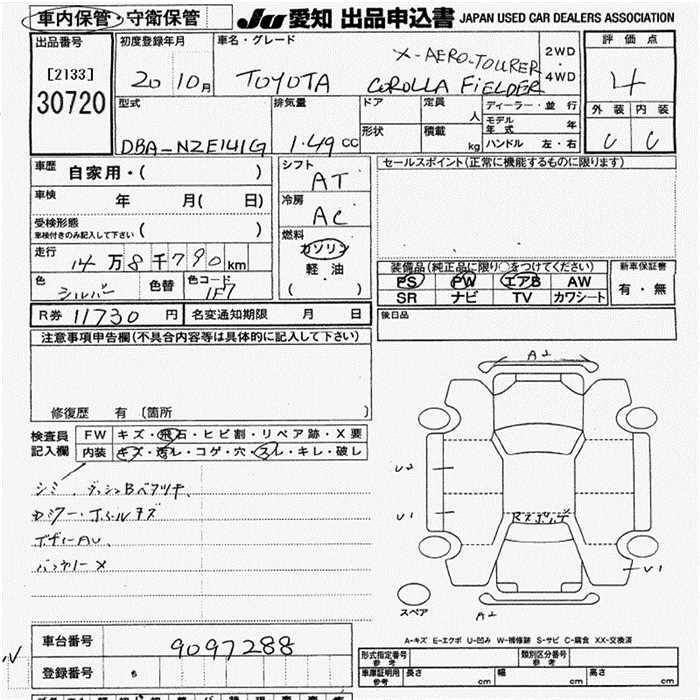 車内保管・守衛保管 JU 愛知 出品申込書 JAPAN USED CAR DEALERS ASSOCIATION
出品番号 初度登録年月 車名・グレード 評価点
[2133] 20 10月 TOYOTA X-AERO-TOURER 2WD
30720 COROLLA FIELDER 4WD 4
型式 排気量 ドア 定員 人 ディーラー・並行 外装 内装
DBA-NZE141G 1.49 CC 形状 積載 kg モデル年式 年 C C
ハンドル 左・右
車歴 自家用・( ) シフト AT セールスポイント(正常に機能するものに限ります)
車検 年 月( 日) 冷房 AC
受検形態 ( )
車検付きのみ記入して下さい
燃料 ガソリン
走行 14万8千790km 軽油
( )
装備品(純正品に限り○をつけてください) 新車保証書
色 シルバー 色替 色コード 1F7
PS PW エアB AW 有・無
SR ナビ TV カワシート
R券 11730 円 名変通知期限 月 日 後日品
注意事項申告欄(不具合内容等は具体的に記入して下さい)
修復歴 有 〔箇所 〕
検査員記入欄 FW キズ・飛石・ヒビ割・リペア跡・X要
内装 キズ・汚レ・コゲ・穴・スレ・キレ・破レ
シミ、ダッシュBベタツキ
ボデーAU
バッテリーX
A2
U2
U1
U1
A2
スペア
A-キズ E-エクボ U-凹み W-補修跡 S-サビ C-腐食 XX-交換済
車台番号 9097288
登録番号
形式指定番号 参考 類別区分番号 参考
車庫証明用 参考 長さ cm 幅 cm 高さ cm